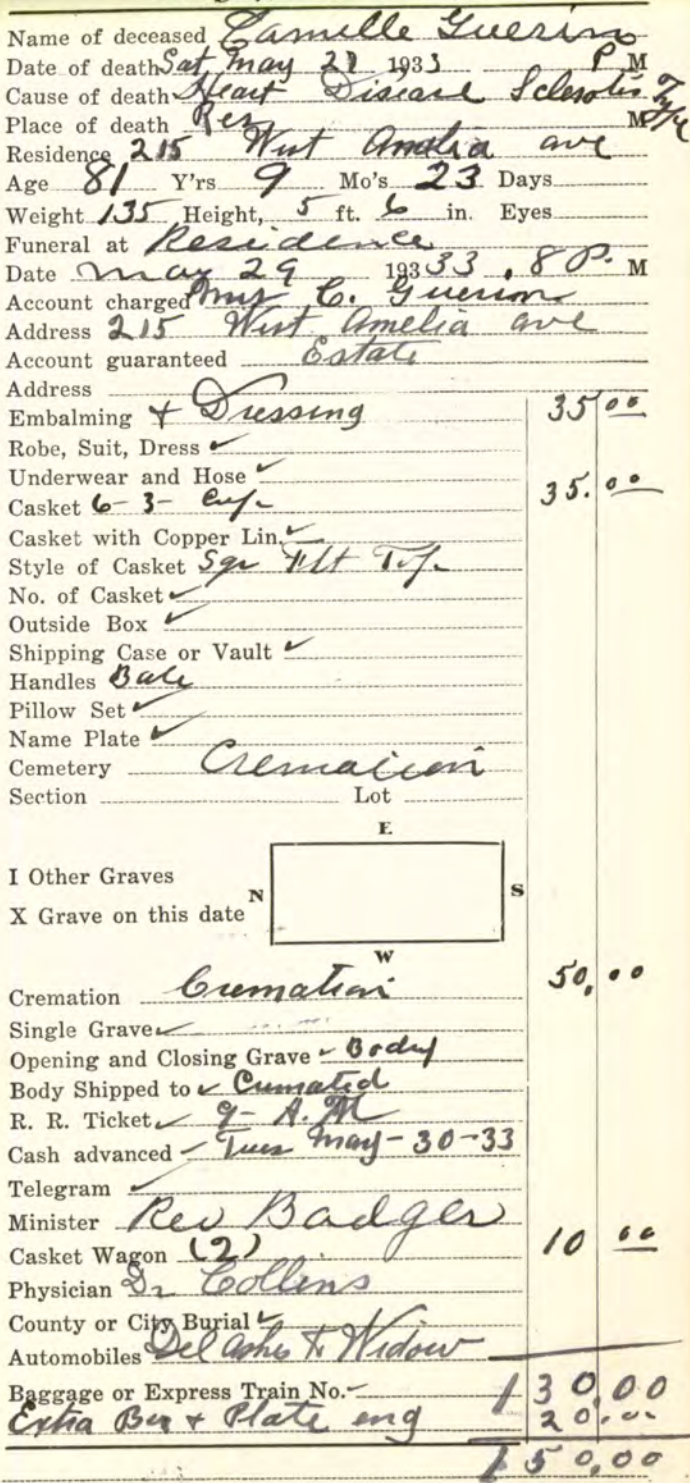 Name of deceased Camille Guerin
Date of death Sat May 27 1933 P M
Cause of death Heart Disease Sclerotis Type
Place of death Res M
Residence 215 West Amelia ave
Age 81 Y'rs 9 Mo's 23 Days
Weight 135 Height, 5 ft. 6 in. Eyes
Funeral at Residence
Date May 29 193 33, 8 P. M
Account charged Mrs C. Guerion
Address 215 West Amelia ave
Account guaranteed Estate
Address
Embalming + Dressing 35 00
Robe, Suit, Dress ✓
Underwear and Hose ✓
Casket 6-3- 35.00
Casket with Copper Lin. ✓
Style of Casket Sqr Flt Top
No. of Casket ✓
Outside Box ✓
Shipping Case or Vault ✓
Handles Bale
Pillow Set ✓
Name Plate ✓
Cemetery Cremation
Section Lot
E
I Other Graves
N S
X Grave on this date
W
Cremation Cremation 50,00
Single Grave ✓
Opening and Closing Grave ✓ Body
Body Shipped to ✓ Cremated
R. R. Ticket ✓ 9- A. M
Cash advanced - Tues May-30-33
Telegram ✓
Minister Rev Badger
Casket Wagon (2) 10 00
Physician Dr Collins
County or City Burial ✓
Automobiles Del Ashes to Widow
Baggage or Express Train No. - 130,00
Extra Box + Plate eng 20.00
150,00